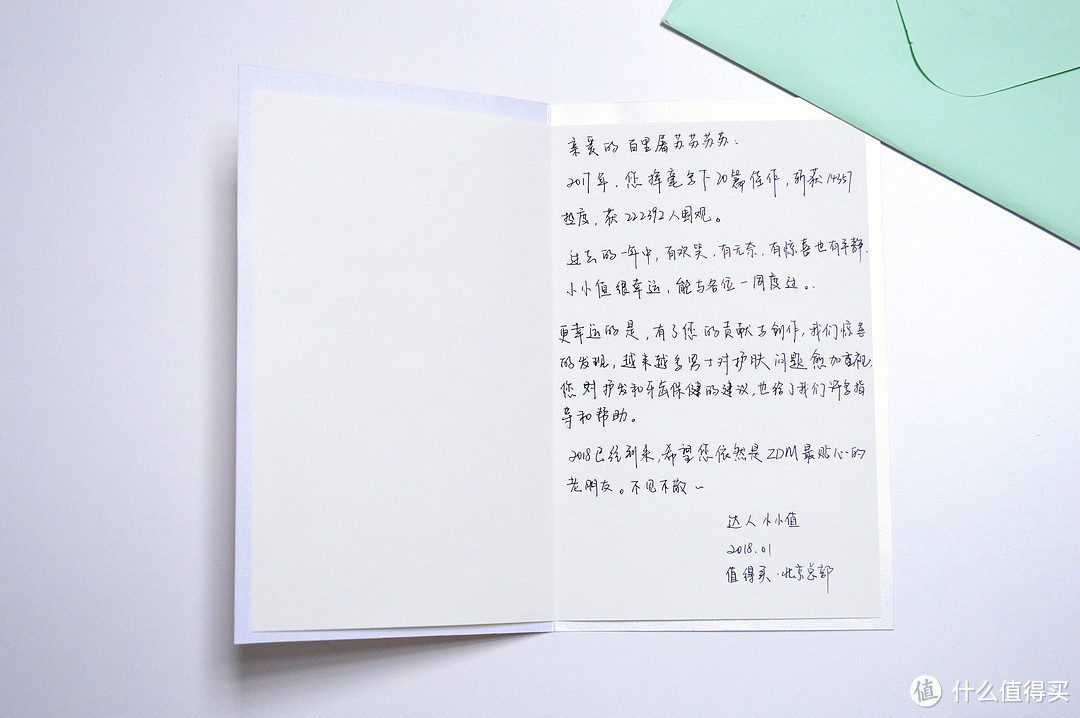 亲爱的百里屠苏苏苏苏：
2017年，您挥毫写下20篇佳作，斩获14357
热度，获222392人围观。
过去的一年中，有欢笑，有无奈，有惊喜也有平静，
小小值很幸运，能与各位一同度过。
更幸运的是，有了您的贡献与创作，我们惊喜
的发现，越来越多男士对护肤问题愈加重视，
您对护发和牙齿保健的建议，也给了我们许多指
导和帮助。
2018已经到来，希望您依然是ZDM最贴心的
老朋友。不见不散~
达人小小值
2018.01
值得买·北京总部
值 什么值得买